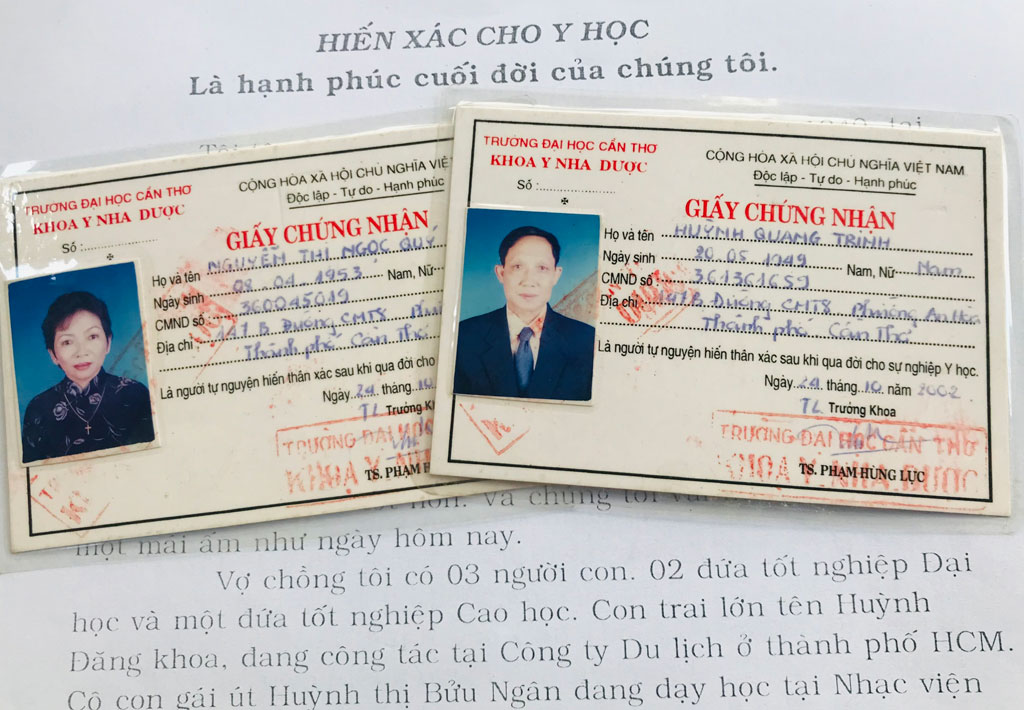 HIẾN XÁC CHO Y HỌC
Là hạnh phúc cuối đời của chúng tôi.
TRƯỜNG ĐẠI HỌC CẦN THƠ
KHOA Y NHA DƯỢC
Số :
CỘNG HÒA XÃ HỘI CHỦ NGHĨA VIỆT
Độc lập - Tự do - Hạnh phúc
GIẤY CHỨNG NHẬN
Họ và tên NGUYỄN THỊ NGỌC QUÝ
Ngày sinh 08.04.1953 Nam, Nữ
CMND số 360045019
Địa chỉ : 147B Đường CMT8
Thành phố Cần Thơ
Là người tự nguyện hiến thân xác sau khi qua đời cho
Ngày 24 tháng 10
TL Trưởng
TRƯỜNG ĐẠI HỌC
KHOA Y NHA
TS. PHẠM
TRƯỜNG ĐẠI HỌC CẦN THƠ
KHOA Y NHA DƯỢC
Số :
CỘNG HÒA XÃ HỘI CHỦ NGHĨA VIỆT NAM
Độc lập - Tự do - Hạnh phúc
GIẤY CHỨNG NHẬN
Họ và tên HUỲNH QUANG TRINH
Ngày sinh 20.05.1949 Nam, Nữ Nam
CMND số 361361659
Địa chỉ : 147B Đường CMT8 Phường An Hòa
Thành phố Cần Thơ
Là người tự nguyện hiến thân xác sau khi qua đời cho sự nghiệp Y học.
Ngày 24 tháng 10 năm 2002
TL Trưởng Khoa
TRƯỜNG ĐẠI HỌC CẦN THƠ
KHOA Y NHA DƯỢC
TS. PHẠM HÙNG LỰC
một mái ấm như ngày hôm nay.
Vợ chồng tôi có 03 người con. 02 đứa tốt nghiệp Đại
học và một đứa tốt nghiệp Cao học. Con trai lớn tên Huỳnh
Đăng khoa, đang công tác tại Công ty Du lịch ở thành phố HCM.
Cô con gái út Huỳnh thị Bửu Ngân đang dạy học tại Nhạc viện